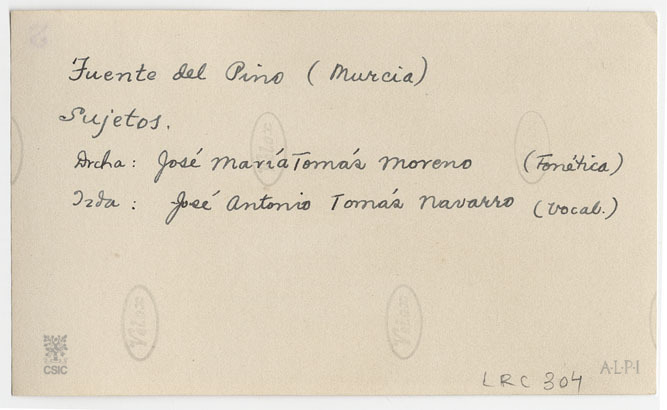 Fuente del Pino (Murcia)
Sujetos.
Drcha: José María Tomás Moreno (Fonética)
Izda: José Antonio Tomás Navarro (Vocab.)
Velox
Velox
Velox
CSIC
A·L·P·I
LRC 304